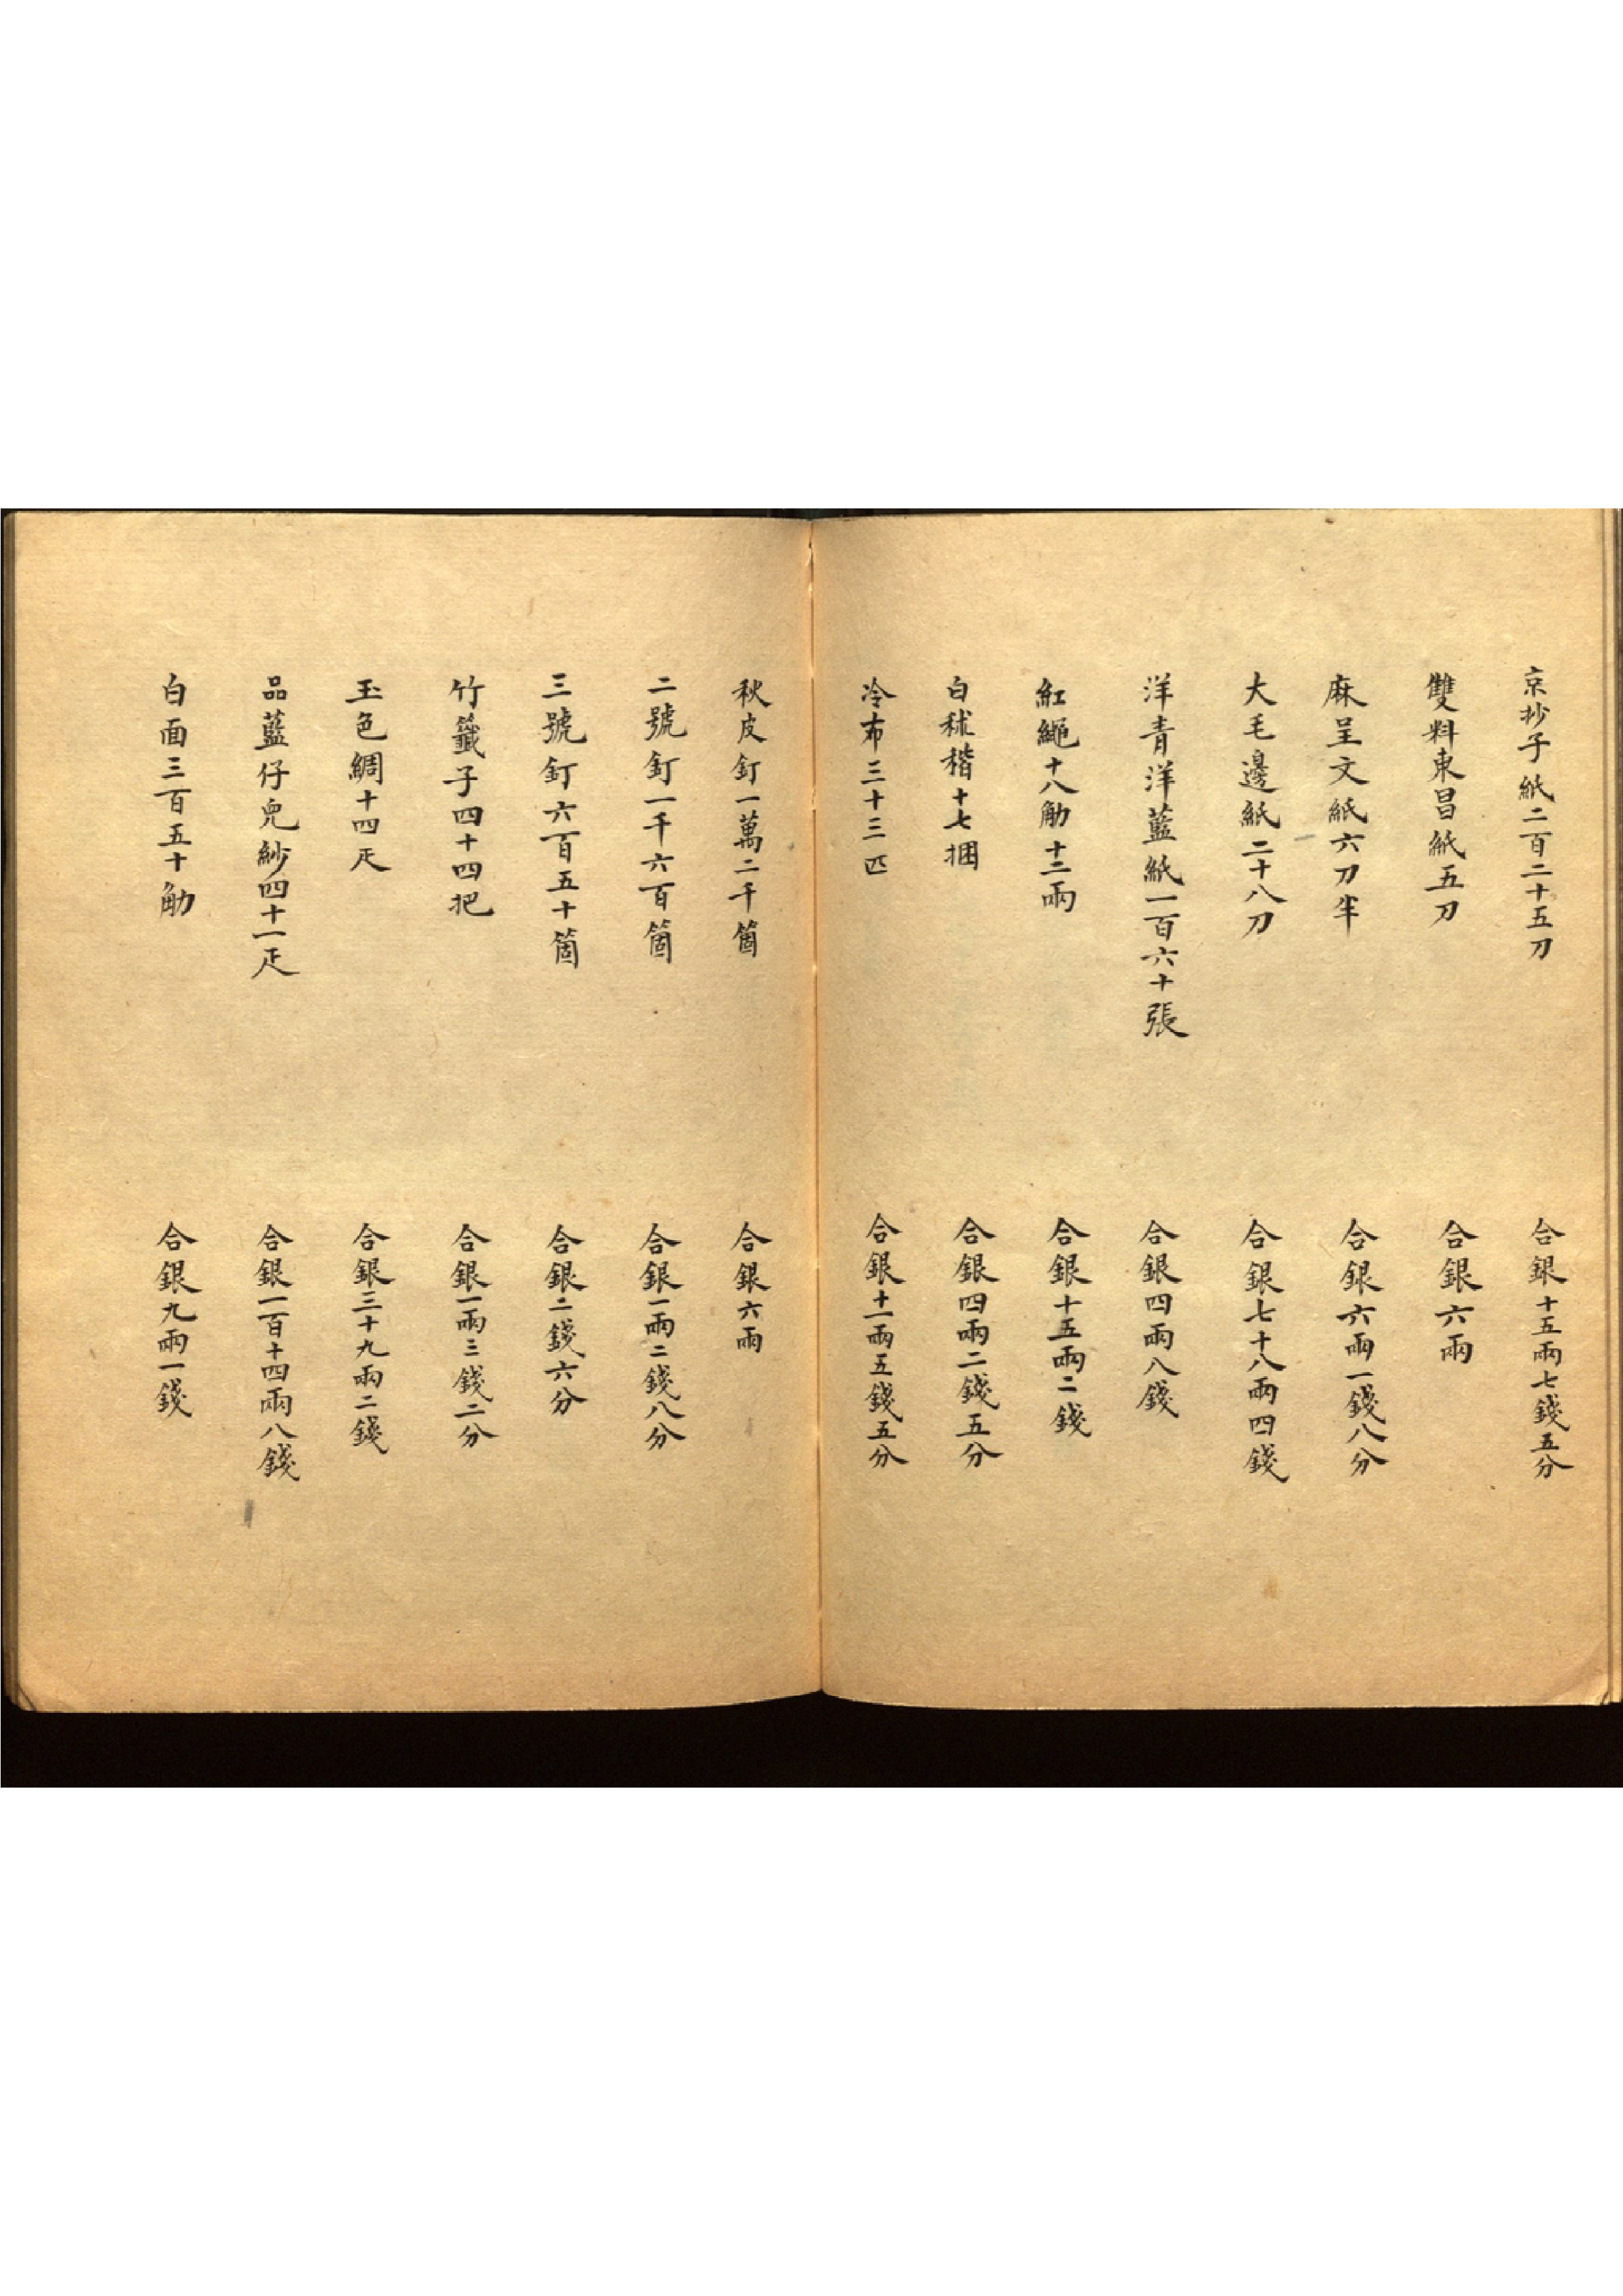 京抄子紙二百二十五刀　合銀十五兩七錢五分
雙料東昌紙五刀　合銀六兩
麻呈文紙六刀半　合銀六兩一錢八分
大毛邊紙二十八刀　合銀七十八兩四錢
洋青洋藍紙一百六十張　合銀四兩八錢
紅繩十八觔十二兩　合銀十五兩二錢
白秫稭十七捆　合銀四兩二錢五分
冷布三十三匹　合銀十一兩五錢五分
秋皮釘一萬二千箇　合銀六兩
二號釘一千六百箇　合銀一兩二錢八分
三號釘六百五十箇　合銀二錢六分
竹籤子四十四把　合銀一兩三錢二分
玉色綢十四疋　合銀三十九兩二錢
品藍仔兜紗四十一疋　合銀一百十四兩八錢
白面三百五十觔　合銀九兩一錢